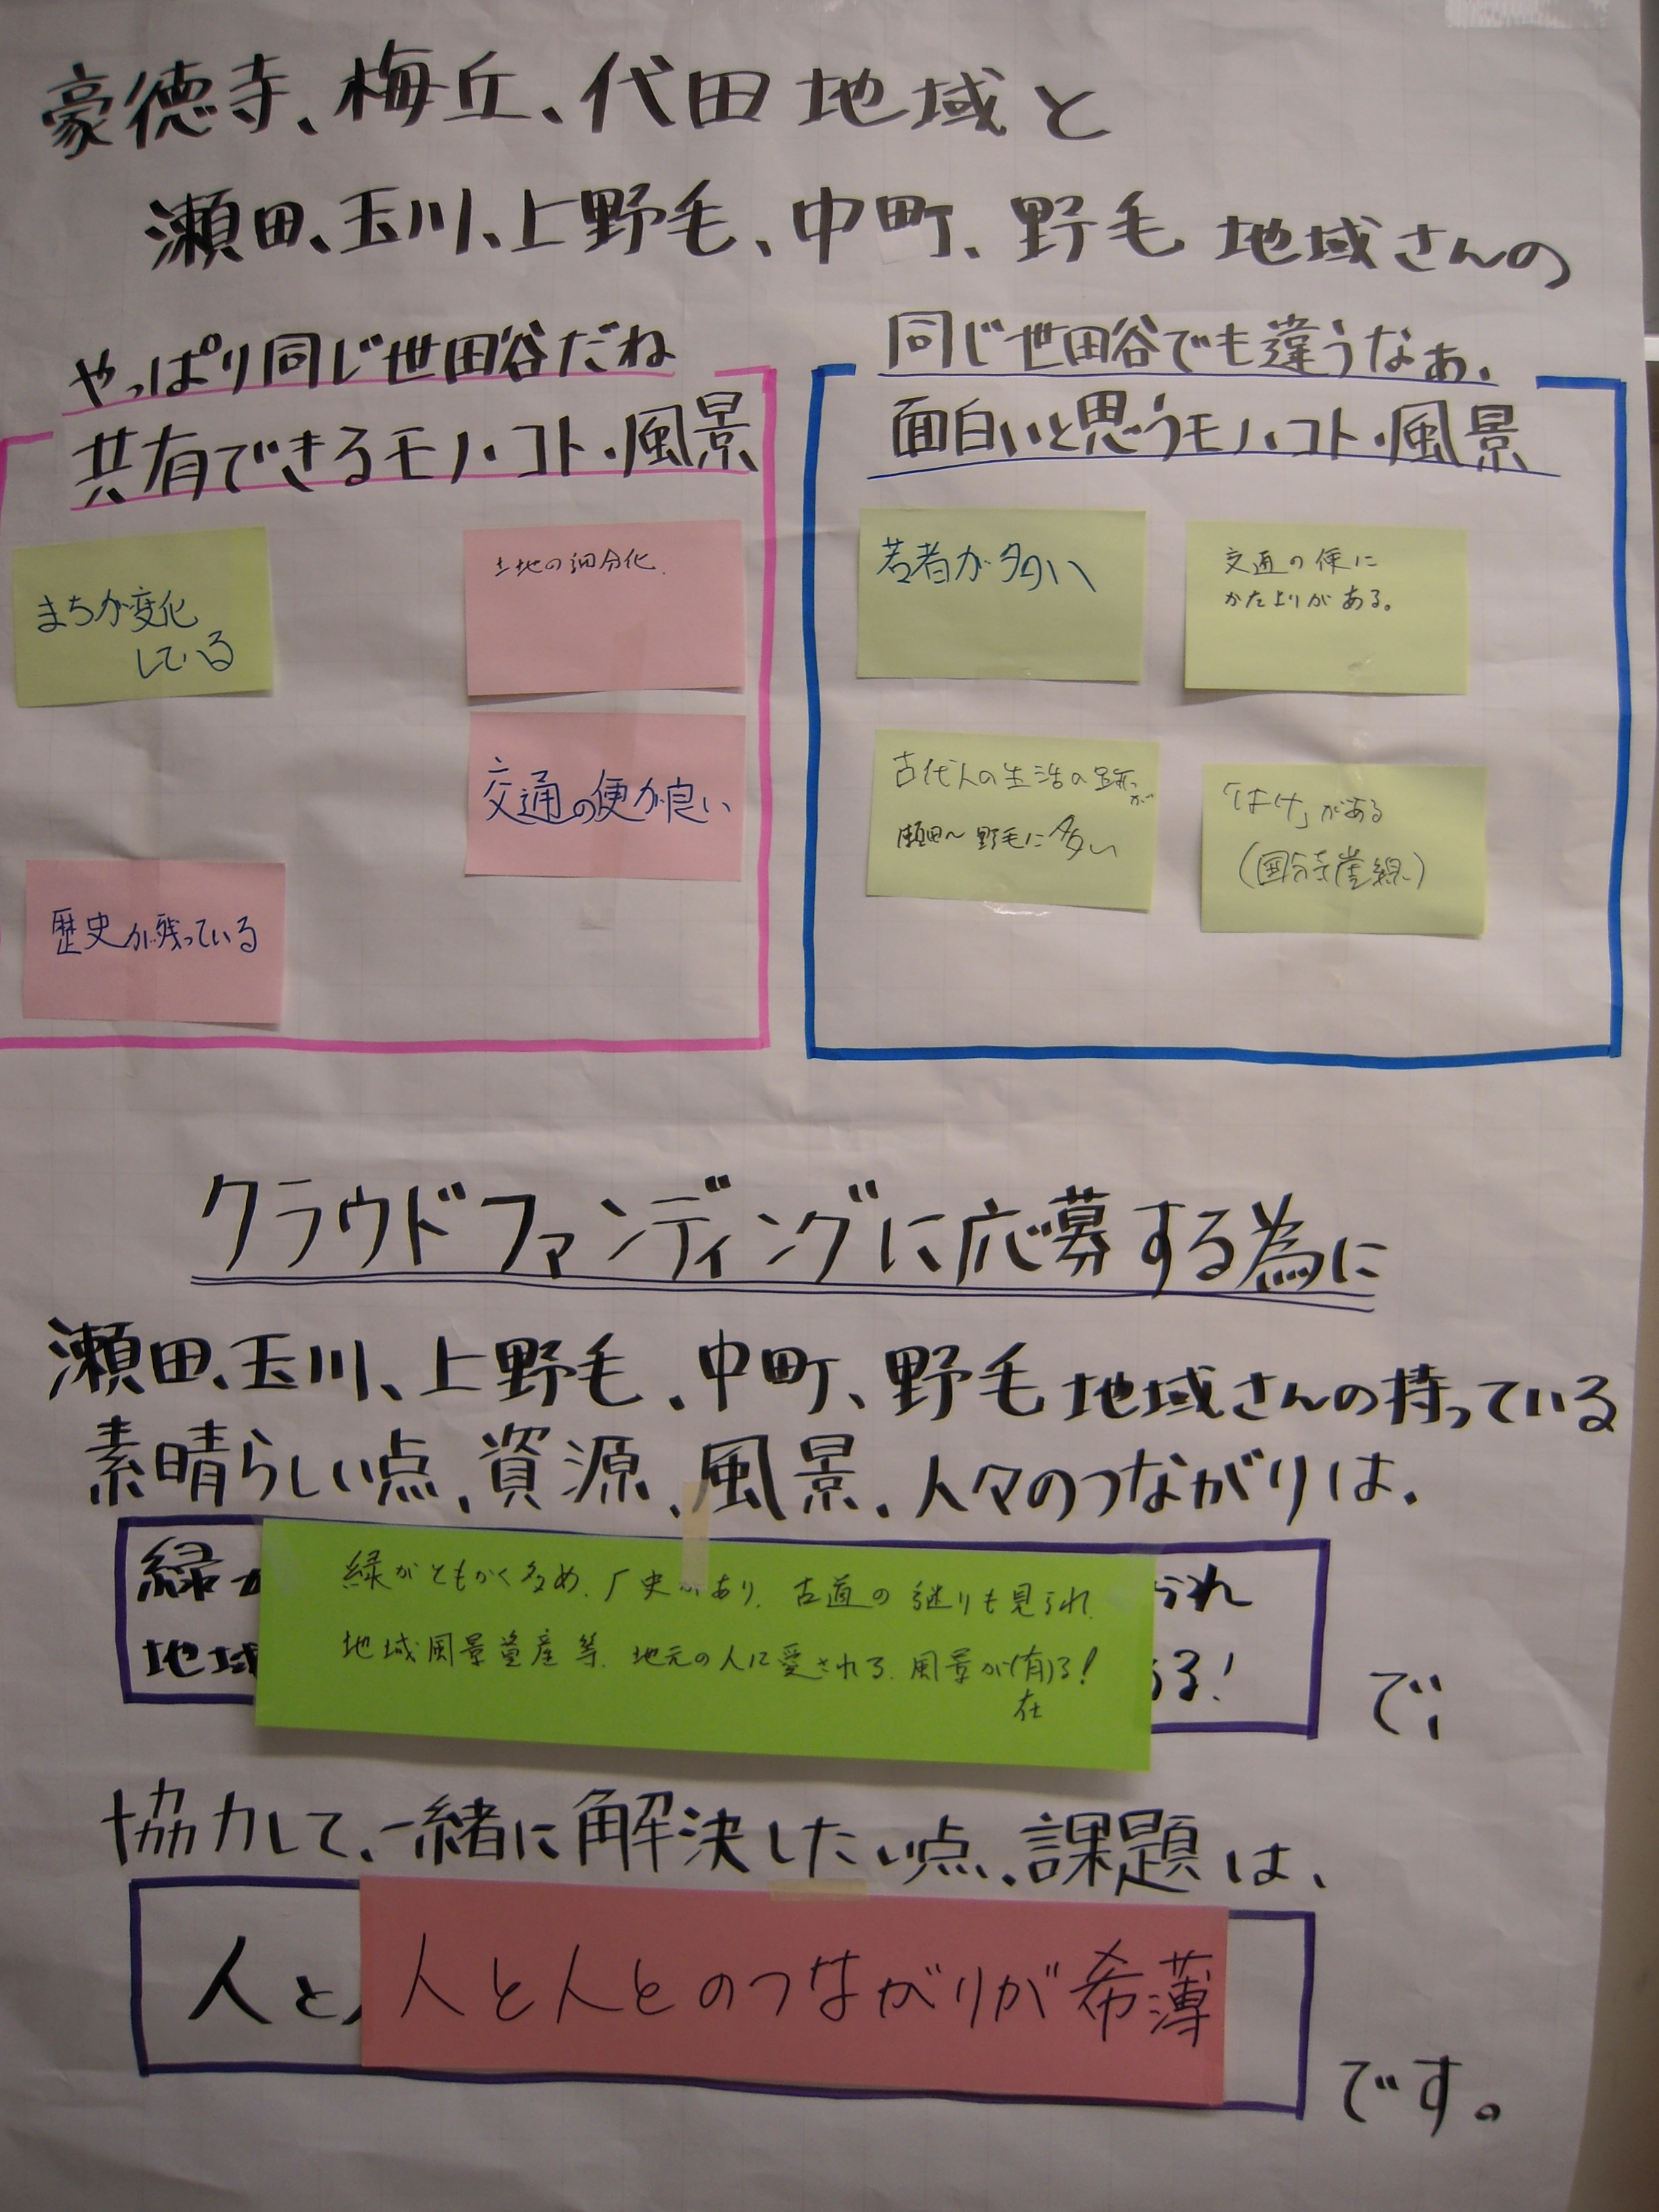 豪徳寺、梅丘、代田地域と
瀬田、玉川、上野毛、中町、野毛地域さんの
やっぱり同じ世田谷だね
共有できるモノ・コト・風景
まちが変化
している
土地の細分化.
交通の便が良い
歴史が残っている
同じ世田谷でも違うなぁ、
面白いと思うモノ・コト・風景
若者が多い
交通の便に
かたよりがある。
古代人の生活の跡が
瀬田〜野毛に多い
「はけ」がある
(国分寺崖線)
クラウドファンディングに応募する為に
瀬田、玉川、上野毛、中町、野毛地域さんの持っている
素晴らしい点、資源、風景、人々のつながりは、
緑が
緑がともかく多め、歴史があり、古道の謎りも見られ
られ
地域
地域風景資産等、地元の人に愛される、風景が(有)る!
在
る!
で、
協力して、一緒に解決したい点、課題は、
人と
人と人とのつながりが希薄
です。